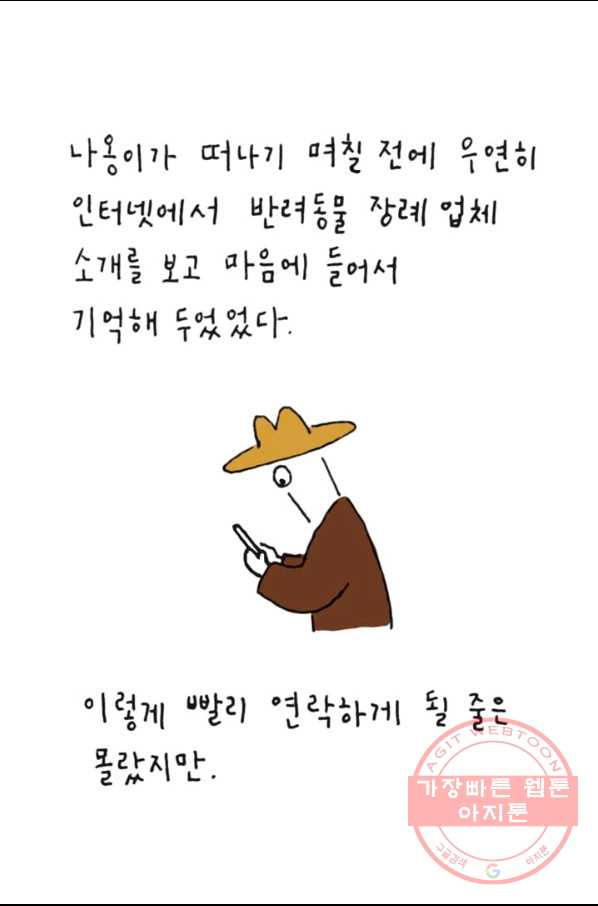 나옹이가 떠나기 며칠 전에 우연히
인터넷에서 반려동물 장례 업체
소개를 보고 마음에 들어서
기억해 두었었다.
이렇게 빨리 연락하게 될 줄은
몰랐지만.
AGIT WEBTOON
가장빠른 웹툰
아지툰
구글검색 G 아지툰